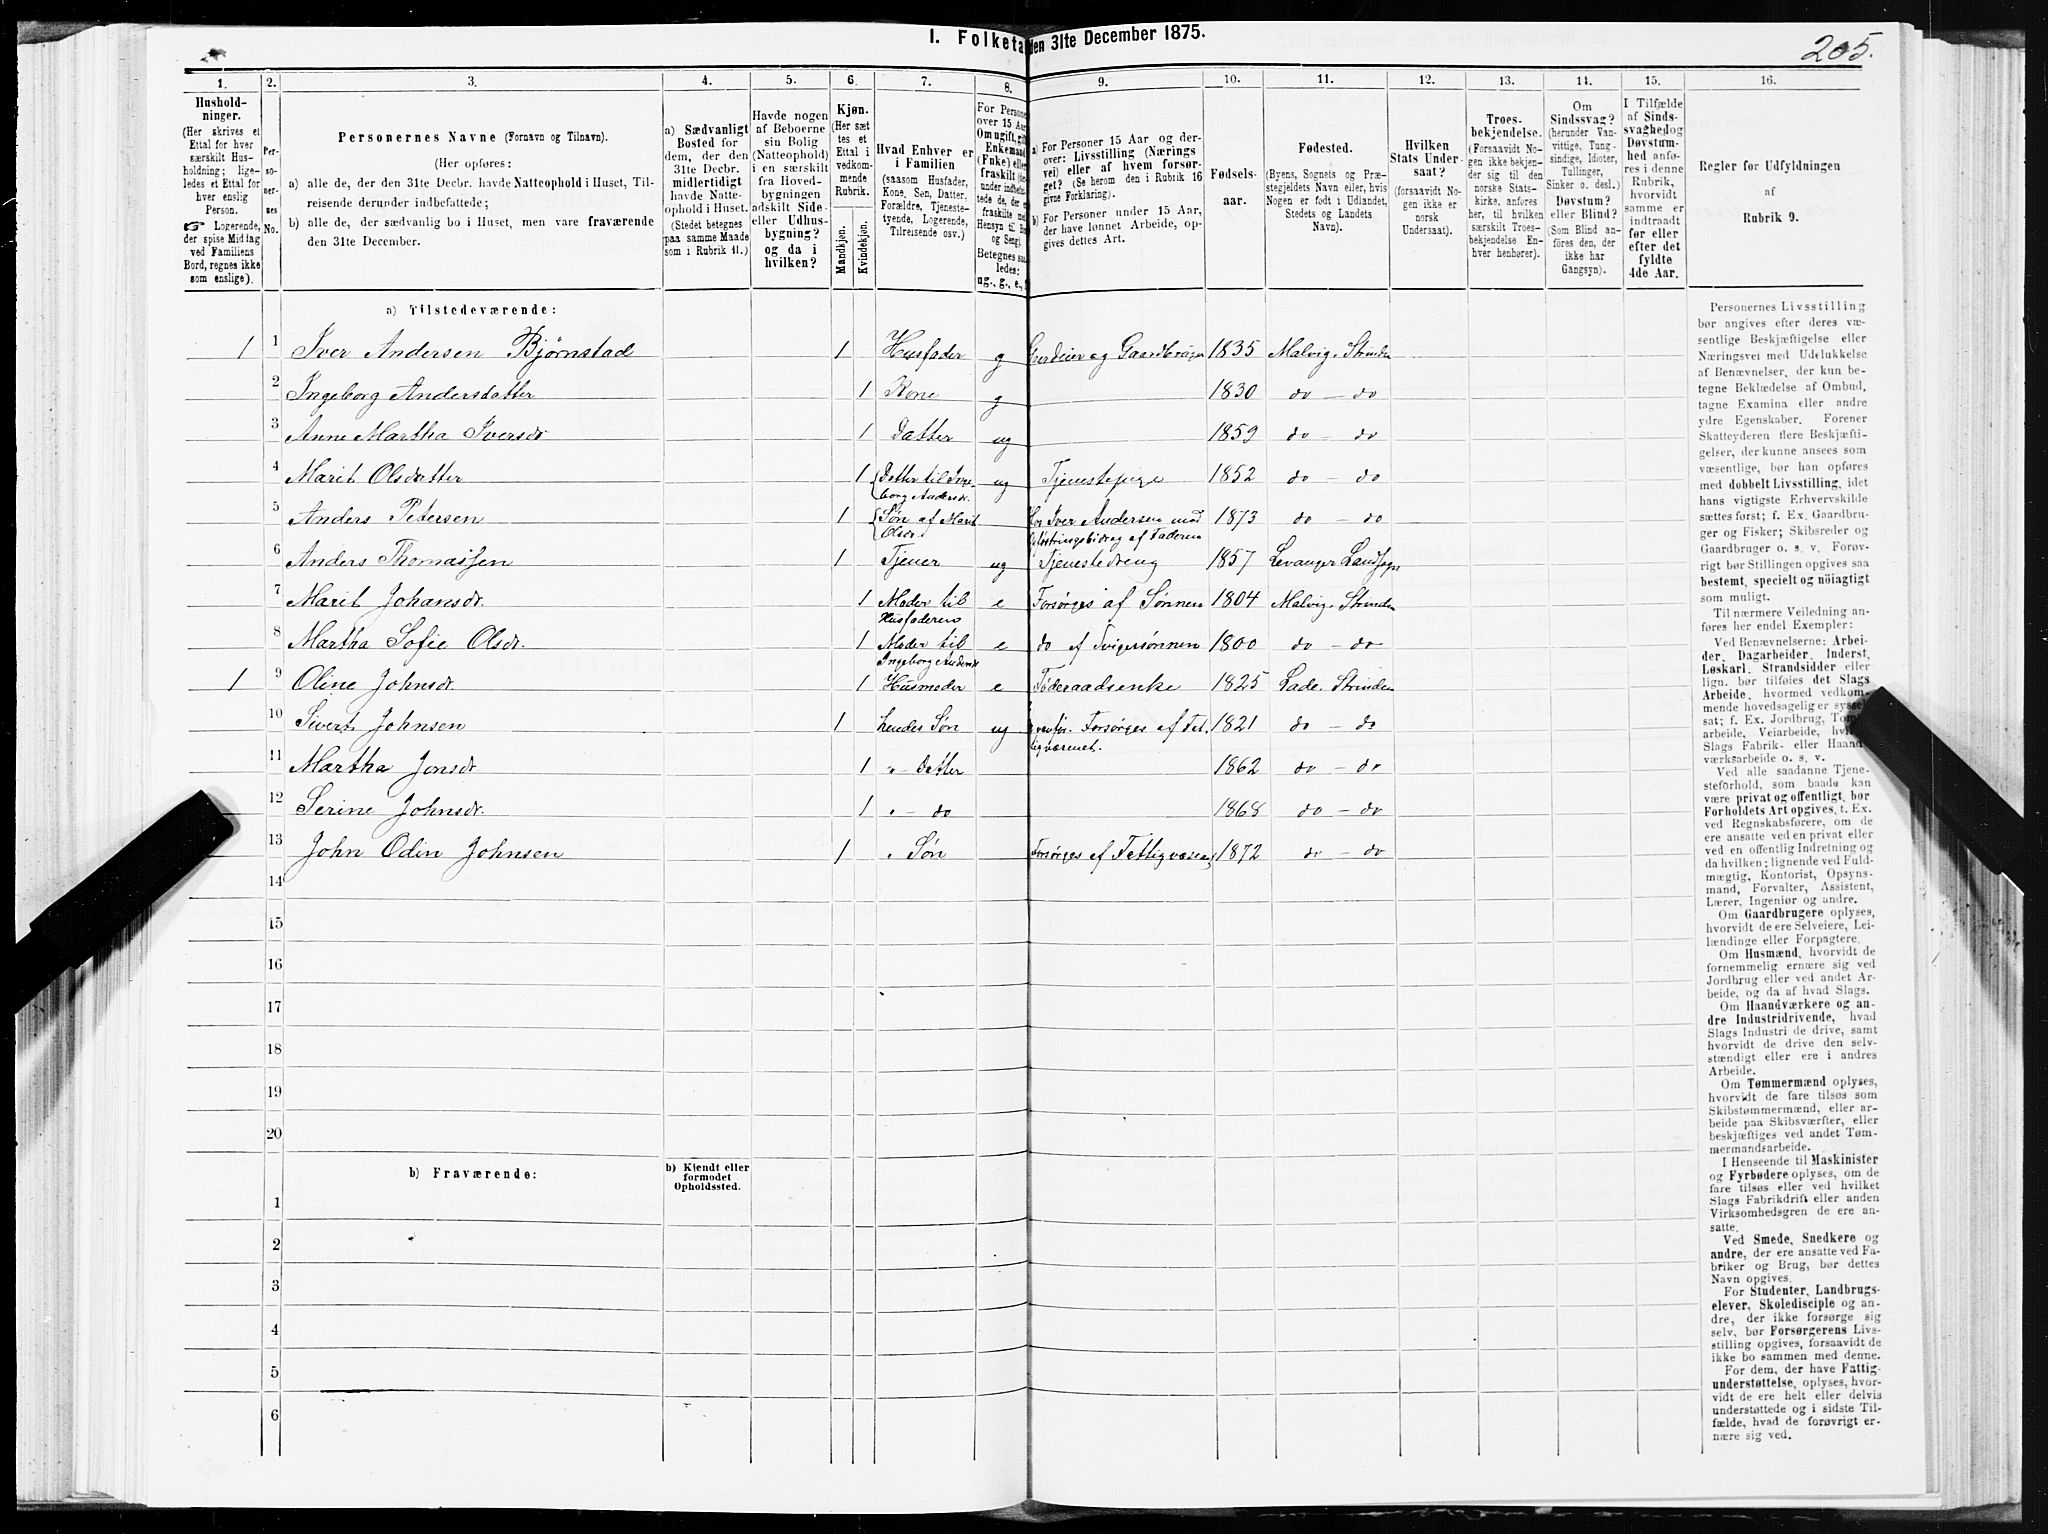 I. Folketa den 31te December 1875.
205.
1. 2. 3. 4. 5. 6. 7. 8. 9. 10. 11. 12. 13. 14. 15. 16.
Hushold-
ninger.
(Her skrives et
Ettal for hver
særskilt Hus-
holdning; lige-
ledes et Ettal for
hver enslig
Person.
☞ Logerende,
der spise Middag
ved Familiens
Bord, regnes ikke
som enslige).
Per-
so-
ner-
nes
No.
Personernes Navne (Fornavn og Tilnavn).
(Her opføres:
a) alle de, der den 31te Decbr. havde Natteophold i Huset, Til-
reisende derunder indbefattede;
b) alle de, der sædvanlig bo i Huset, men vare fraværende
den 31te December.
a) Sædvanligt
Bosted for
dem, der den
31te Decbr.
midlertidigt
havde Natte-
ophold i Huset.
(Stedet betegnes
paa samme Maade
som i Rubrik 11.)
Havde nogen
af Beboerne
sin Bolig
(Natteophold)
i en særskilt
fra Hoved-
bygningen
adskilt Side-
eller Udhus-
bygning?
og da i
hvilken?
Kjøn.
(Her sæt-
tes et
Ettal i
vedkom-
mende
Rubrik.
Mandkjøn.
Kvindekjøn.
Hvad Enhver er
i Familien
(saasom Husfader,
Kone, Søn, Datter,
Forældre, Tjeneste-
tyende, Logerende,
Tilreisende osv.)
For Persone
over 15 Aar
Om ugift, gift
Enkemand
(Enke) eller
fraskilt
Betegnes saa-
ledes:
ug., g., e.,
a) For Personer 15 Aar og der-
over: Livsstilling (Nærings
vei) eller af hvem forsør-
get? (Se herom den i Rubrik 16
givne Forklaring).
b) For Personer under 15 Aar,
der have lønnet Arbeide, op-
gives dettes Art.
Fødsels-
aar.
Fødested.
(Byens, Sognets og Præ-
stegjeldets Navn eller, hvis
Nogen er født i Udlandet,
Stedets og Landets
Navn).
Hvilken
Stats Under-
saat?
(forsaavidt No-
gen ikke er
norsk
Undersaat).
Troes-
bekjendelse.
(Forsaavidt No-
gen ikke bekjen-
der sig til den
norske Stats-
kirke, anføres
her, til hvilken
særskilt Troes-
bekjendelse En-
hver henhører).
Om
Sindssvag?
(herunder Van-
vittige, Tung-
sindige, Idioter,
Tullinger,
Sinker o. desl.)
Døvstum?
eller Blind?
(Som Blind an-
føres den, der
ikke har
Gangsyn).
I Tilfælde
af Sinds-
svaghed og
Døvstum-
hed anfø-
res i denne
Rubrik,
hvorvidt
samme er
indtraadt
før eller
efter det
fyldte
4de Aar.
Regler for Udfyldningen
af
Rubrik 9.
a) Tilstedeværende:
1 1 Iver Andersen Bjørnstad 1 Husfader g Gaardeier og Gaardbruger 1835 Malvig. Strinden
2 Ingeborg Andersdatter 1 Kone g 1830 do — do
3 Anne Martha Iversdr 1 Datter ug 1859 do — do
4 Marit Olsdatter 1 Datter til Inge-
borg Andersdr. ug Tjenestepige 1852 do — do
5 Anders Petersen 1 Søn af Marit
Olsdr. Hos Iver Andersen med
Opfostringsbidrag af Faderen 1873 do — do
6 Anders Thomassen 1 Tjener ug Tjenestedreng 1857 Levanger Landsogn
7 Marit Johansdr. 1 Moder til
Husfaderen e Forsørges af Sønnen 1804 Malvig. Strinden
8 Martha Sofie Olsdr. 1 Moder til
Ingeborg Andersdr e do af Svigersønnen 1800 do — do
1 9 Oline Johnsdr. 1 Husmoder e Føderaadsenke 1825 Lade. Strinden
10 Sivert Johnsen 1 hendes Søn ug Forsørges af Fat-
tigvæsenet. 1821 do — do
11 Martha Jonsdr. 1 "— Datter 1862 do — do
12 Serine Johnsdr. 1 "— do 1868 do — do
13 John Odin Johnsen 1 " Søn Forsørges af Fattigvæsenet 1872 do — do
14
15
16
17
18
19
20
b) Fraværende:
b) Kjendt eller
formodet
Opholdssted.
1
2
3
4
5
6
Personernes Livsstilling
bør angives efter deres væ-
sentlige Beskjæftigelse eller
Næringsvei med Udelukkelse
af Benævnelser, der kun be-
tegne Beklædelse af Ombud,
tagne Examina eller andre
ydre Egenskaber. Forener
Skatteyderen flere Beskjæfti-
gelser, der kunne ansees som
væsentlige, bør han opføres
med dobbelt Livsstilling, idet
hans vigtigste Erhvervskilde
sættes først; f. Ex. Gaardbru-
ger og Fisker; Skibsreder og
Gaardbruger o. s. v. Forøv-
rigt bør Stillingen opgives saa
bestemt, specielt og nöiagtigt
som muligt.
Til nærmere Veiledning an-
føres her endel Exempler:
Ved Benævnelserne: Arbei-
der, Dagarbeider, Inderst,
Løskarl, Strandsidder eller
lign. bør tilføies det Slags
Arbeide, hvormed vedkom-
mende hovedsagelig er syssel-
sat; f. Ex. Jordbrug, Tomt-
arbeide, Veiarbeide, hvilket
Slags Fabrik- eller Haand-
værksarbeide o. s. v.
Ved alle saadanne Tjene-
steforhold, som baade kan
være privat og offentligt, bør
Forholdets Art opgives, t. Ex.
ved Regnskabsførere, om de
ere ansatte ved en privat eller
ved en offentlig Indretning og
da hvilken; lignende ved Fuld-
mægtig, Kontorist, Opsyns-
mand, Forvalter, Assistent,
Lærer, Ingeniør og andre.
Om Gaardbrugere oplyses,
hvorvidt de ere Selveiere, Lei-
lændinge eller Forpagtere.
Om Husmænd, hvorvidt de
fornemmelig ernære sig ved
Jordbrug eller ved andet Ar-
beide, og da af hvad Slags.
Om Haandværkere og an-
dre Industridrivende, hvad
Slags Industri de drive, samt
hvorvidt de drive den selv-
stændigt eller ere i andres
Arbeide.
Om Tømmermænd oplyses,
hvorvidt de fare tilsøs som
Skibstømmermænd, eller ar-
beide paa Skibsværfter, eller
beskjæftiges ved andet Tøm-
mermandsarbeide.
I Henseende til Maskinister
og Fyrbødere oplyses, om de
fare tilsøs eller ved hvilket
Slags Fabrikdrift eller anden
Virksomhedsgren de ere an-
satte.
Ved Smede, Snedkere og
andre, der ere ansatte ved Fa-
briker og Brug, bør dettes
Navn opgives.
For Studenter, Landbrugs-
elever, Skoledisciple og an-
dre, der ikke forsørge sig
selv, bør Forsørgerens Livs-
stilling opgives, forsaavidt de
ikke bo sammen med denne.
For dem, der have Fattig-
understøttelse, oplyses, hvor-
vidt de ere helt eller delvis
understøttede og i sidste Til-
fælde, hvad de forøvrigt er-
nære sig ved.